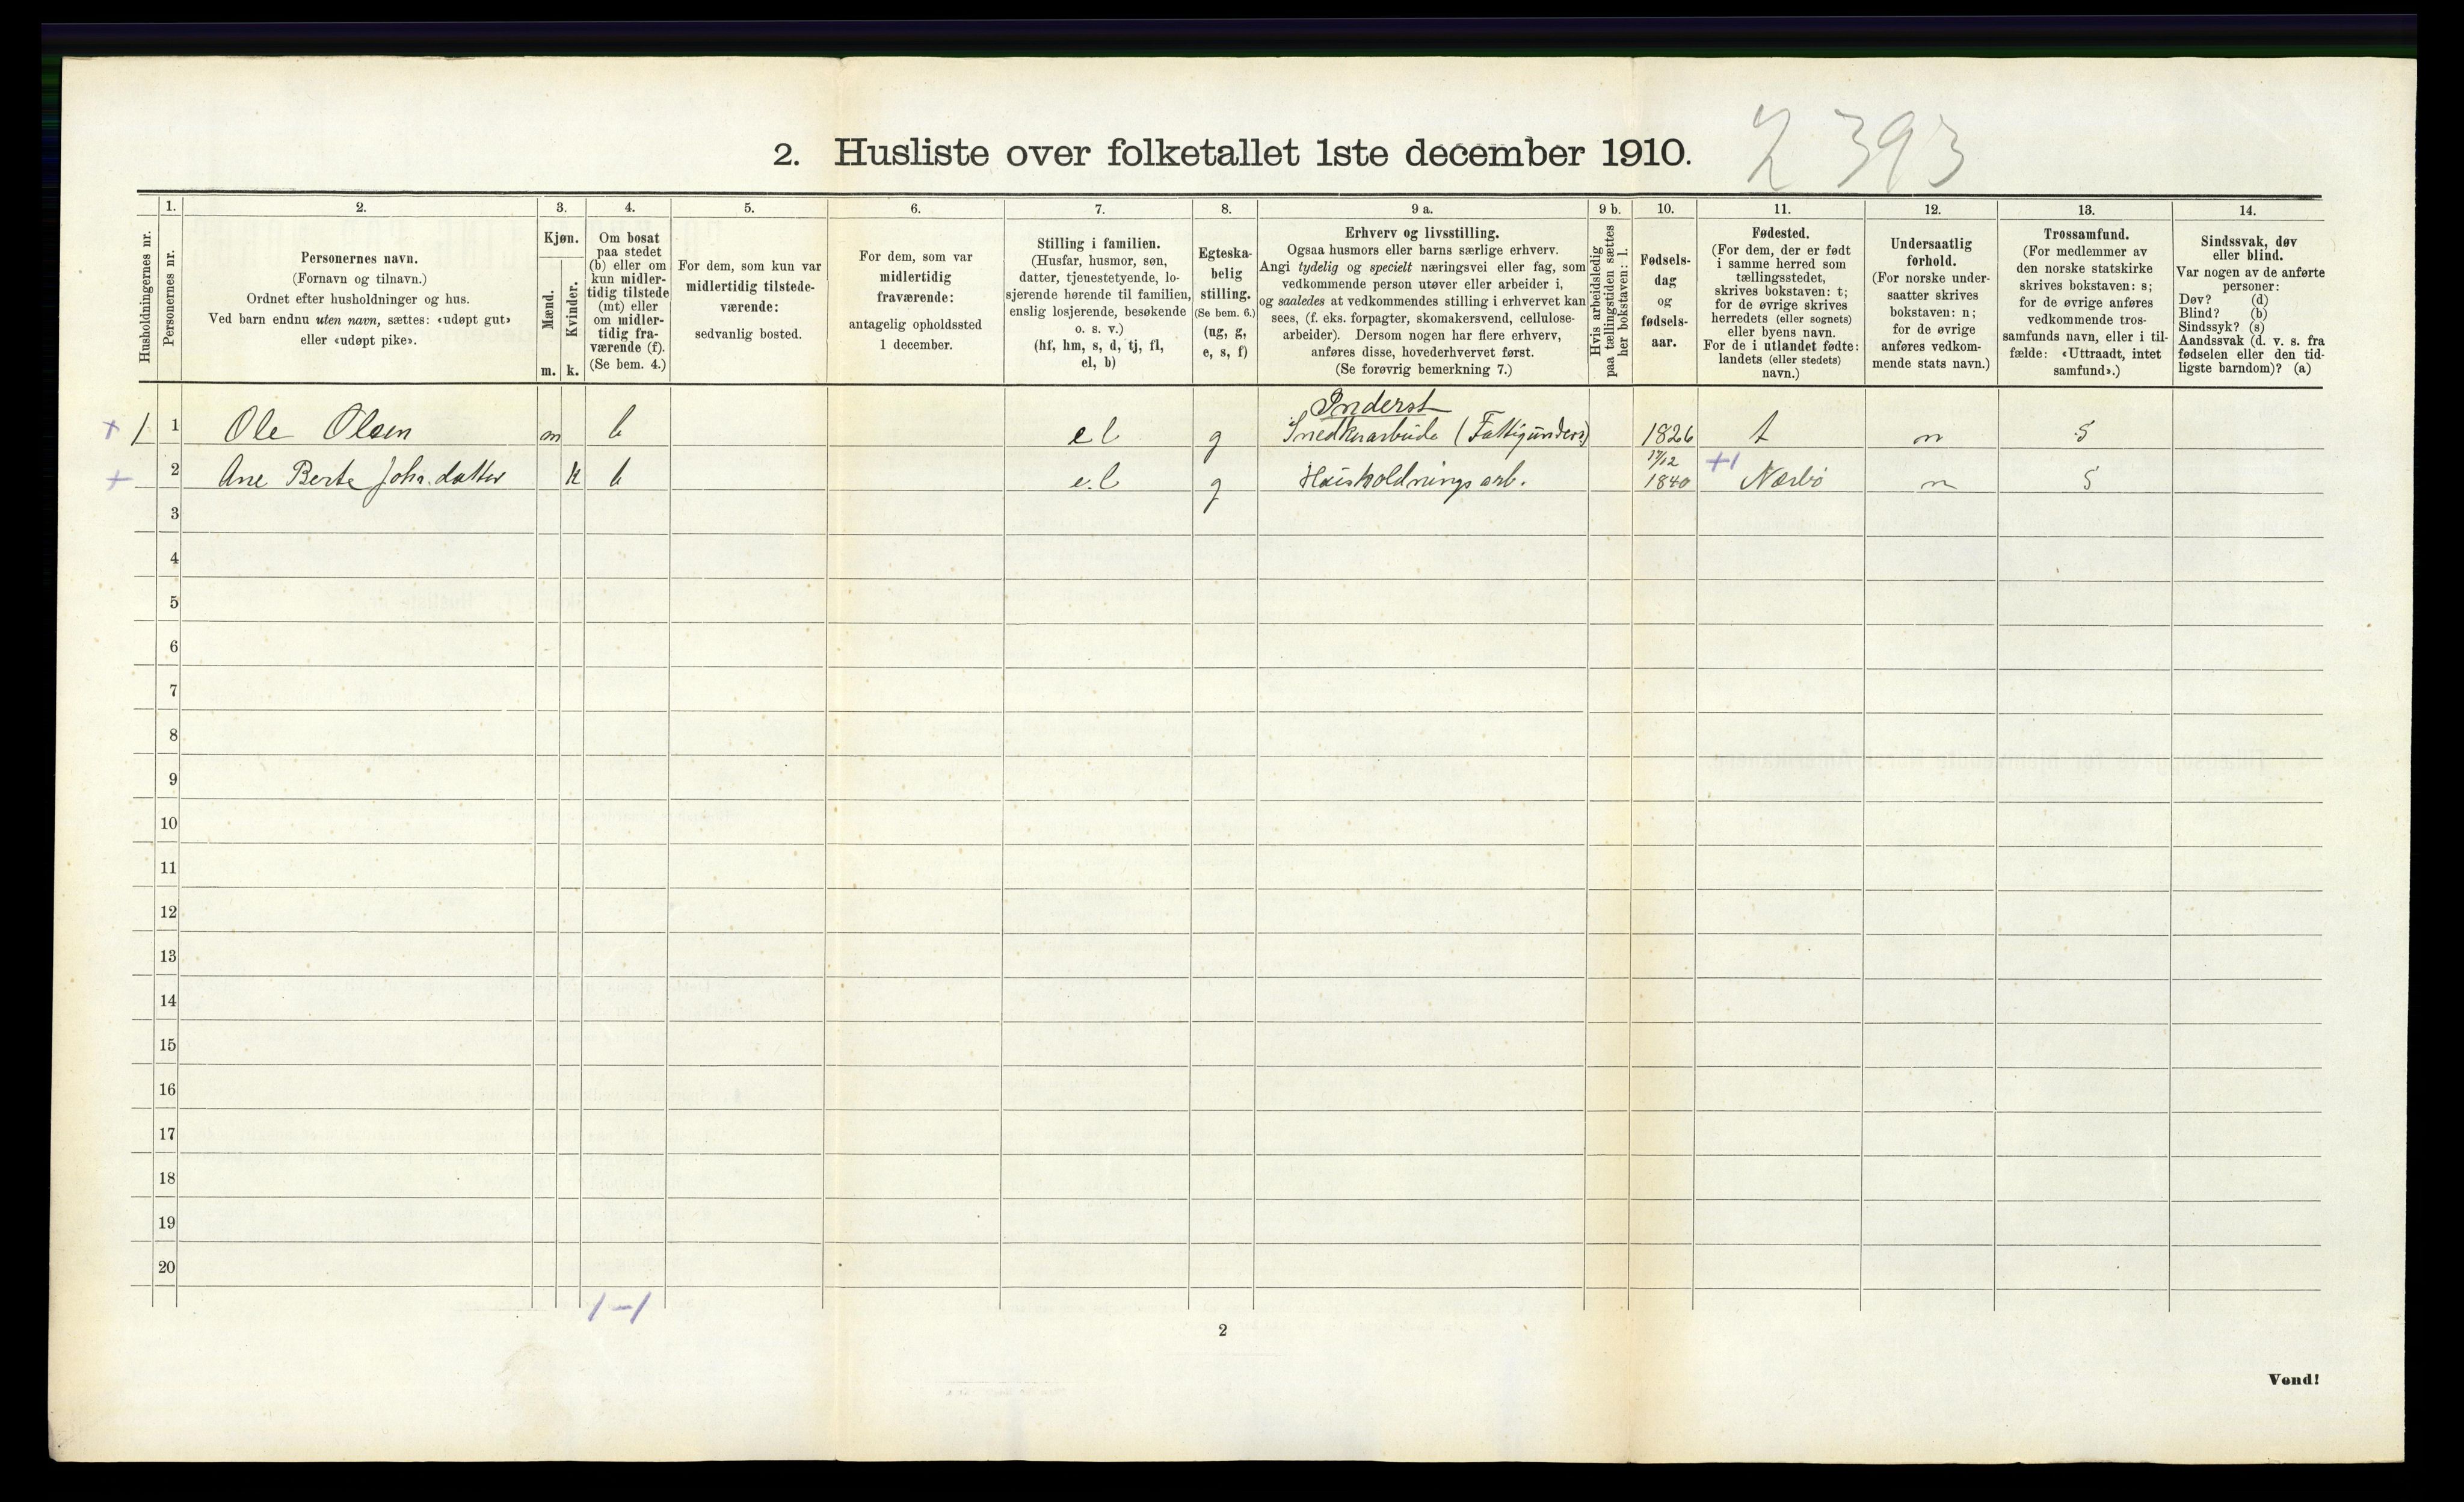 2. Husliste over folketallet 1ste december 1910.
2 393
Husholdningernes nr.
1.
Personernes nr.
2.
Personernes navn.
(Fornavn og tilnavn.)
Ordnet efter husholdninger og hus.
Ved barn endnu uten navn, sættes: «udøpt gut»
eller «udøpt pike».
3.
Kjøn.
Mænd.
Kvinder.
m. k.
4.
Om bosat
paa stedet
(b) eller om
kun midler-
tidig tilstede
(mt) eller
om midler-
tidig fra-
værende (f).
(Se bem. 4.)
5.
For dem, som kun var
midlertidig tilstede-
værende:
sedvanlig bosted.
6.
For dem, som var
midlertidig
fraværende:
antagelig opholdssted
1 december.
7.
Stilling i familien.
(Husfar, husmor, søn,
datter, tjenestetyende, lo-
sjerende hørende til familien,
enslig losjerende, besøkende
o. s. v.)
(hf, hm, s, d, tj, fl,
el, b)
8.
Egteska-
belig
stilling.
(Se bem. 6.)
(ug, g,
e, s, f)
9 a.
Erhverv og livsstilling.
Ogsaa husmors eller barns særlige erhverv.
Angi tydelig og specielt næringsvei eller fag, som
vedkommende person utøver eller arbeider i,
og saaledes at vedkommendes stilling i erhvervet kan
sees, (f. eks. forpagter, skomakersvend, cellulose-
arbeider). Dersom nogen har flere erhverv,
anføres disse, hovederhvervet først.
(Se forøvrig bemerkning 7.)
9 b.
Hvis arbeidsledig
paa tællingstiden sættes
her bokstaven: l.
10.
Fødsels-
dag
og
fødsels-
aar.
11.
Fødested.
(For dem, der er født
i samme herred som
tællingsstedet,
skrives bokstaven: t;
for de øvrige skrives
herredets (eller sognets)
eller byens navn.
For de i utlandet fødte:
landets (eller stedets)
navn.)
12.
Undersaatlig
forhold.
(For norske under-
saatter skrives
bokstaven: n;
for de øvrige
anføres vedkom-
mende stats navn.)
13.
Trossamfund.
(For medlemmer av
den norske statskirke
skrives bokstaven: s;
for de øvrige anføres
vedkommende tros-
samfunds navn, eller i til-
fælde: «Uttraadt, intet
samfund».)
14.
Sindssvak, døv
eller blind.
Var nogen av de anførte
personer:
Døv? (d)
Blind? (b)
Sindssyk? (s)
Aandssvak (d. v. s. fra
fødselen eller den tid-
ligste barndom)? (a)
Inderst
+ 1 1 Ole Olsen m b el g Snedkerarbeide (Fattigunders) 1826 t n s
17/12
+ 2 Ane Berte Joh. datter k b e.l g Husholdningsarb. 1840 +1 Nærbø n s
3
4
5
6
7
8
9
10
11
12
13
14
15
16
17
18
19
20
1 - 1
2
Vend!